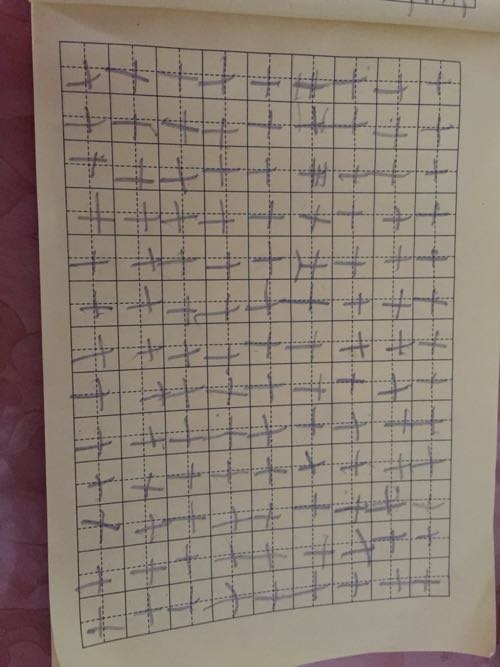 十十十十十十十十十
十十十十十十十十十
十十十十十十十十十
十十十十十十十十十
十十十十十十十十十
十十十十十十十十十
十十十十十十十十十
十十十十十十十十十
十十十十十十十十十
十十十十十十十十十
十十十十十十十十十
十十十十十十十十十
十十十十十十十十十